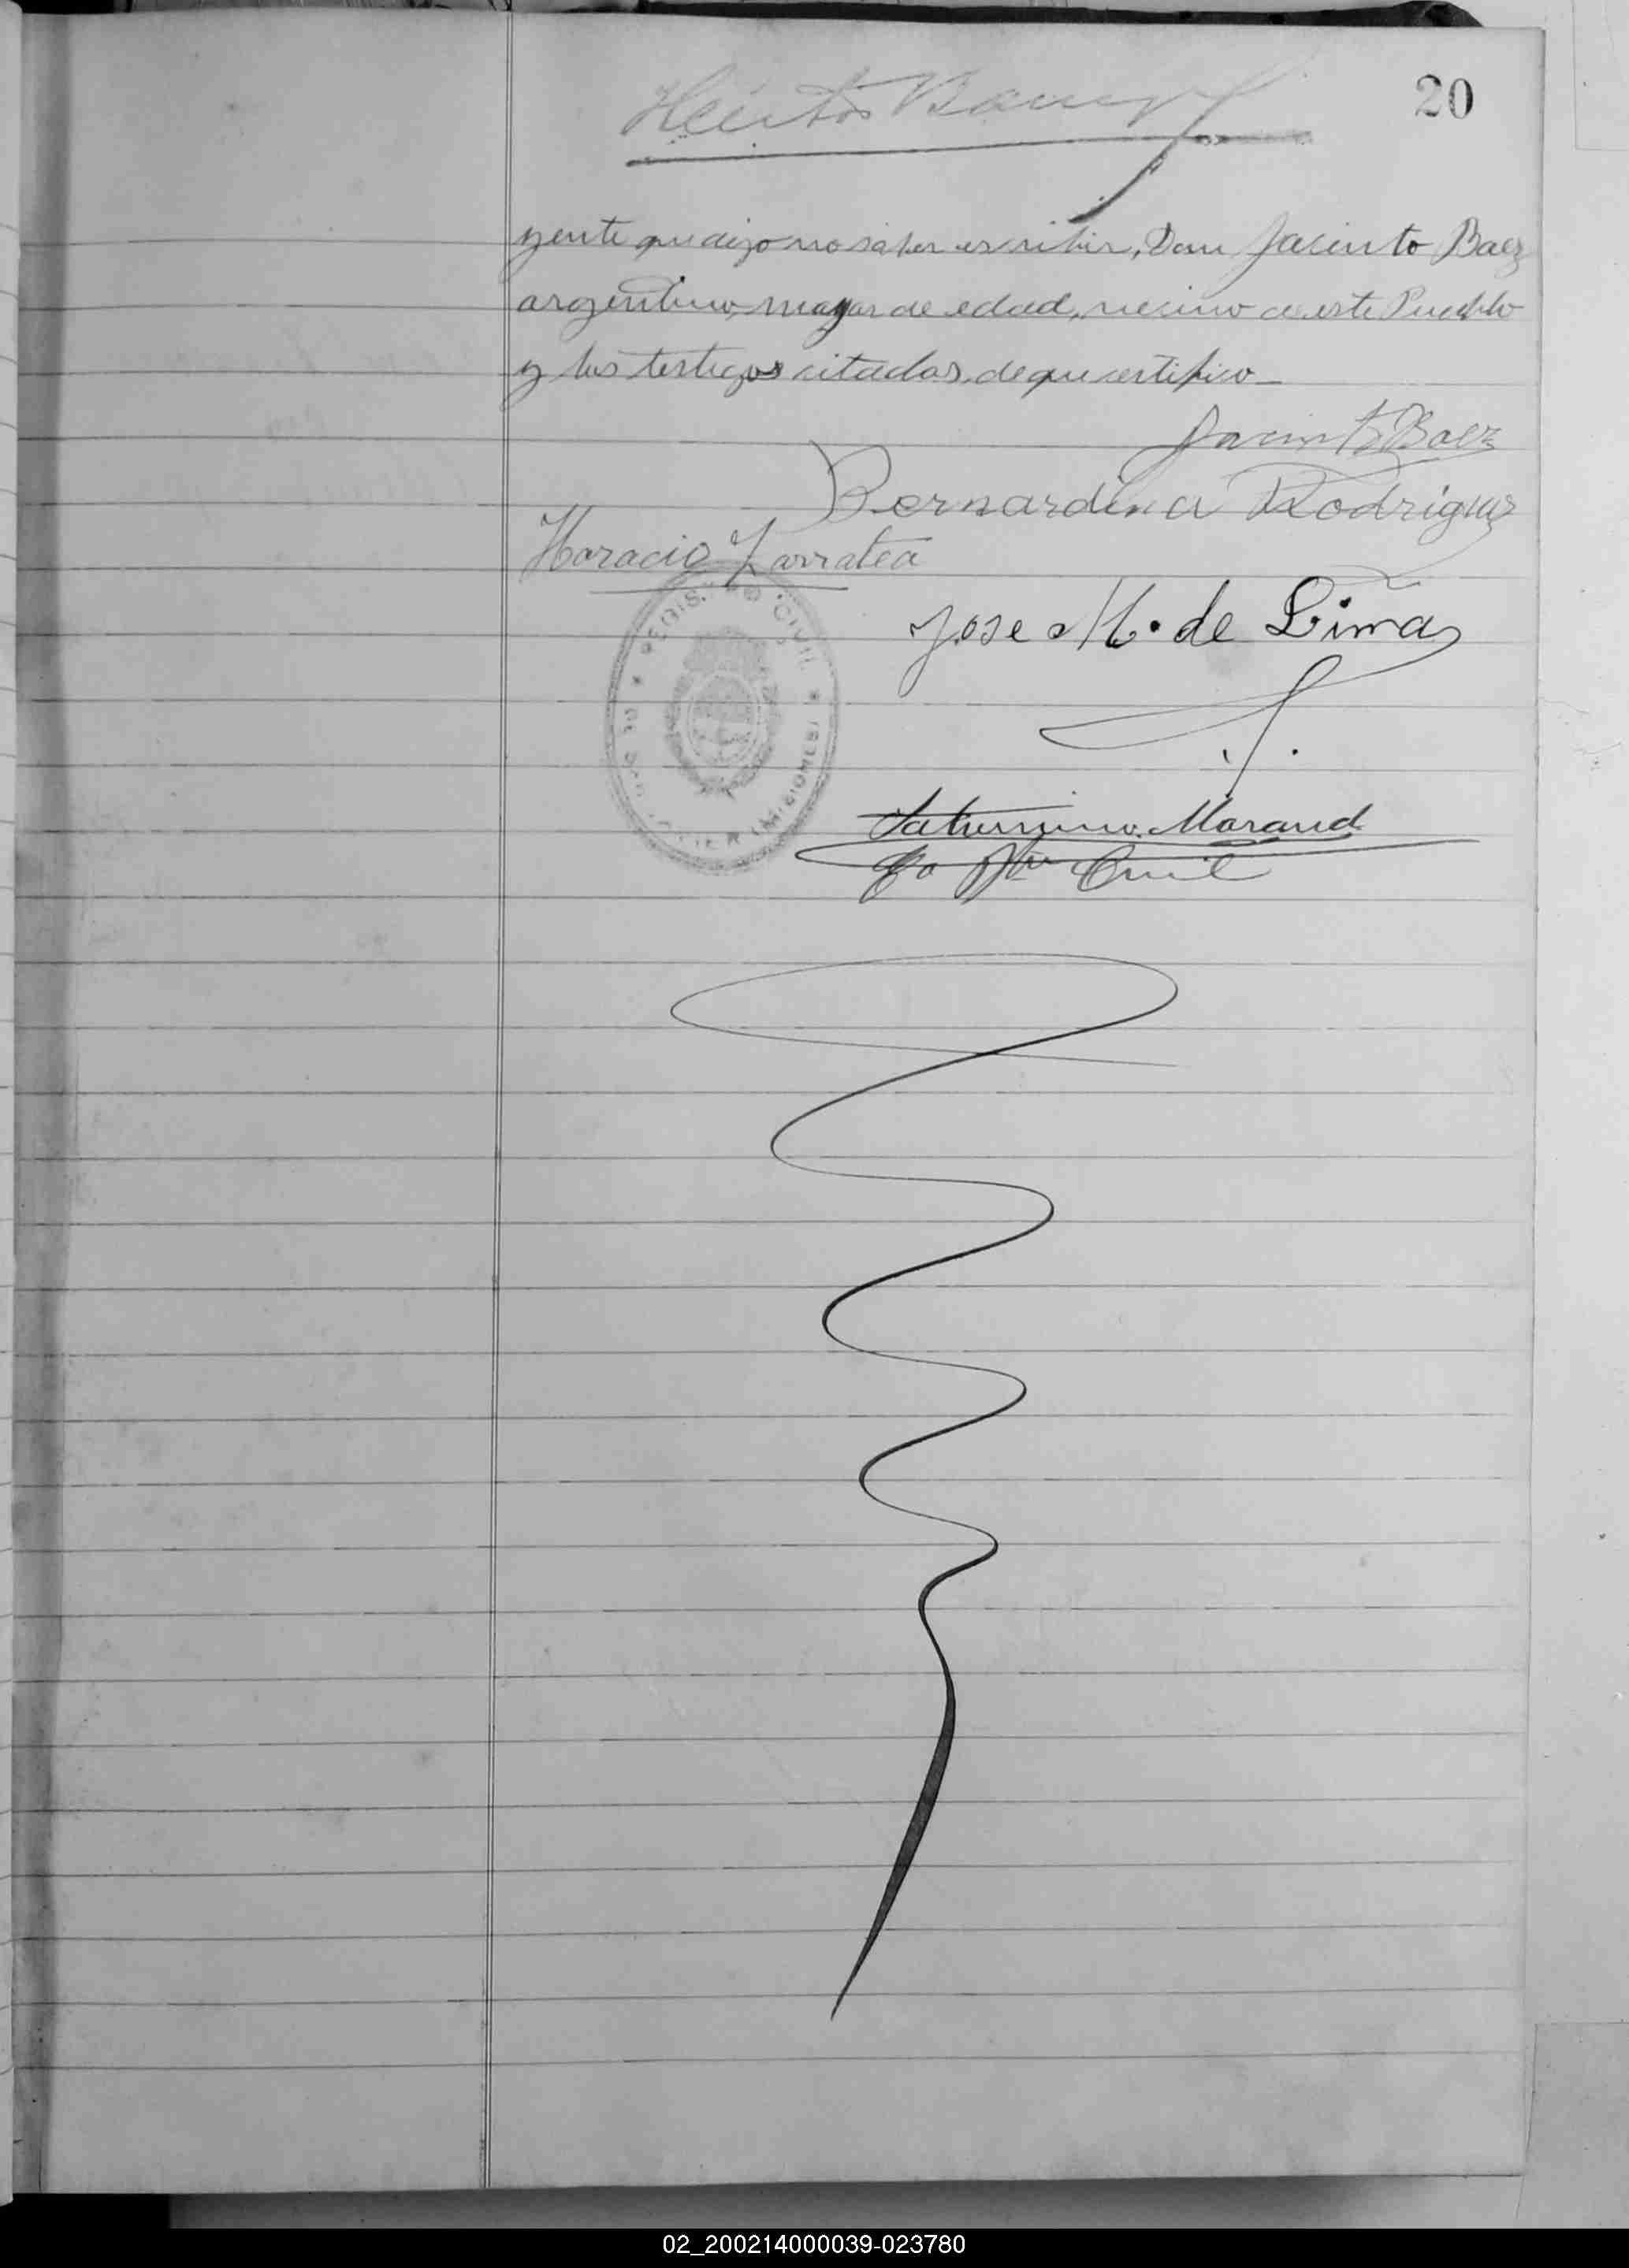 20
Héctor
yente que dijo no saber escribir, Don Jacinto Baez
argentino, mayor de edad, vecino de este Pueblo
y los testigos citados, de que certifico_
Jacinto Baez
Bernardina Rodriguez
Horacio Zarratea
REGISTRO CIVIL
(MISIONES)
Jose M. de Lima
Saturnino Morand
Civil
02_200214000039-023780